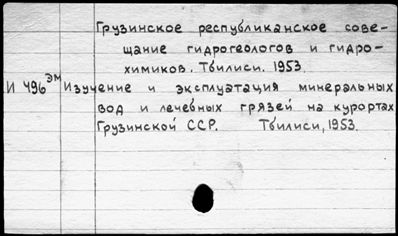 Грузинское республиканское сове-
щание гидрогеологов и гидро-
химиков. Тбилиси. 1953.
И 496 ЭМ Изучение и эксплуатация минеральных
вод и лечебных грязей на курортах
Грузинской ССР. Тбилиси, 1953.